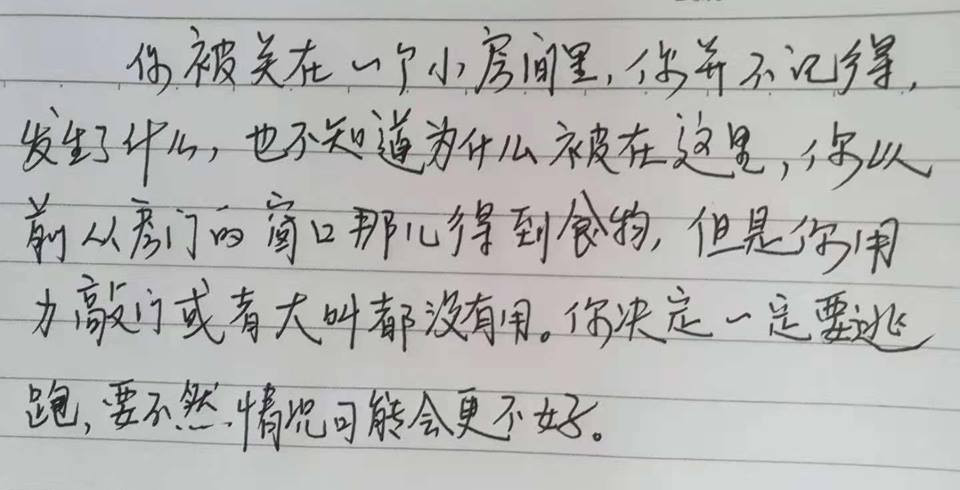 你被关在一个小房间里,你并不记得,
发生了什么,也不知道为什么被在这里,你以
前从房门的窗口那儿得到食物,但是你用
力敲门或者大叫都没有用。你决定一定要逃
跑,要不然情况可能会更不好。